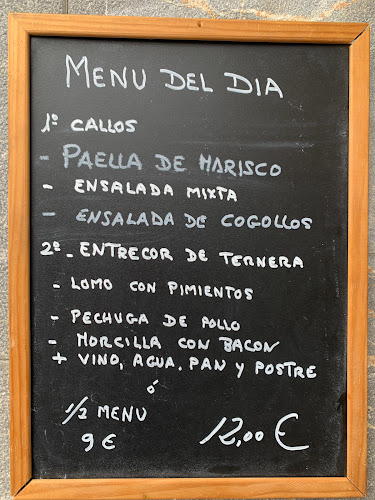 MENU DEL DIA
1º CALLOS
- PAELLA DE MARISCO
- ENSALADA MIXTA
- ENSALADA DE COGOLLOS
2º - ENTRECOR DE TERNERA
- LOMO CON PIMIENTOS
- PECHUGA DE POLLO
- MORCILLA CON BACON
+ VINO, AGUA. PAN Y POSTRE
ó
1/2 MENU
9 € 12,00 €